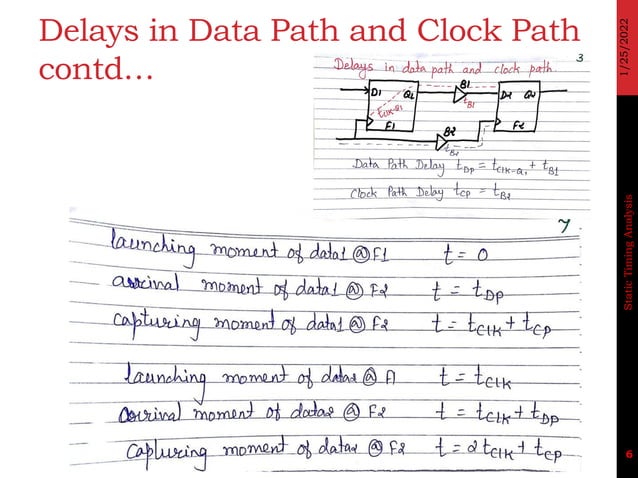 Delays in Data Path and Clock Path
contd...
1/25/2022
3
Delays in data path and clock path
B1
D1 Q1 tB1 D2 Q2
tClk-Q1
F1 B2 F2
tB2
Data Path Delay tDP = tClk-Q1 + tB1
Clock Path Delay tCP = tB2
7
launching moment of data1 @ F1 t = 0
arrival moment of data1 @ F2 t = tDP
capturing moment of data1 @ F2 t = tClk + tCP
launching moment of data2 @ F1 t = tClk
arrival moment of data2 @ F2 t = tClk + tDP
capturing moment of data2 @ F2 t = 2tClk + tCP
Static Timing Analysis
6